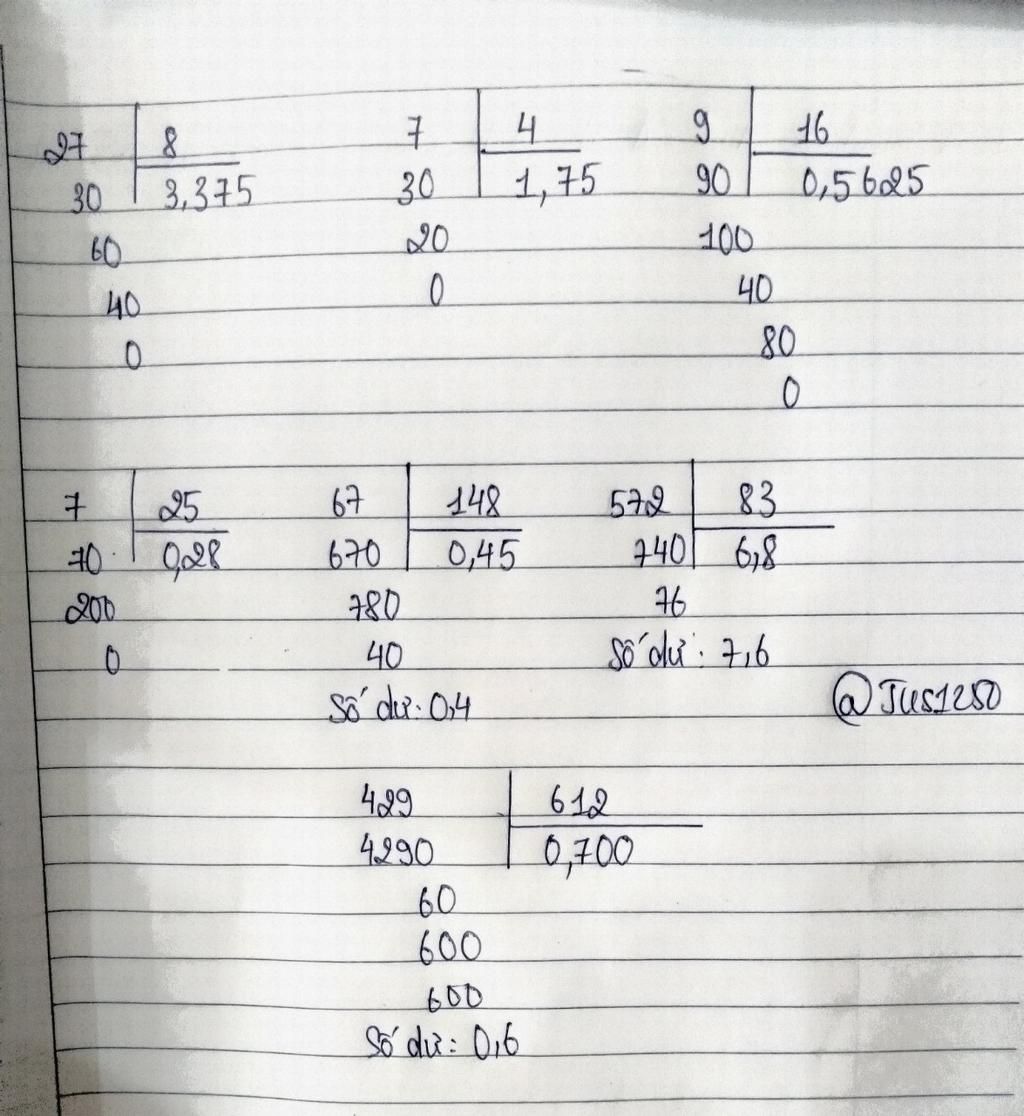 27 8 7 4 9 16
30 3,375 30 1,75 90 0,5625
60 20 100
40 0 40
0 80
0
7 25 67 148 572 83
70 0,28 670 0,45 740 6,8
200 780 76
0 40 Số dư: 7,6
Số dư: 0,4
@Jus1250
429 612
4290 0,700
60
600
600
Số dư: 0,6